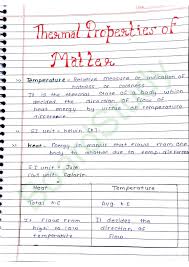 Thermal Properties of
Matter
Temperature - Relative measure or indication of
hotness or coldness
It is the thermal State of a body which
decides the direction of flow of
heat energy by virtue on temperature
difference
SI unit - kelvin [K]
Heat - Energy in transit that flows from one
body to another due to temp. difference
SI unit - Joule
CGS unit - Calorie
Heat Temperature
Total K.E Avg K.E
It flows from It decides the
high to low direction of
temperature flow